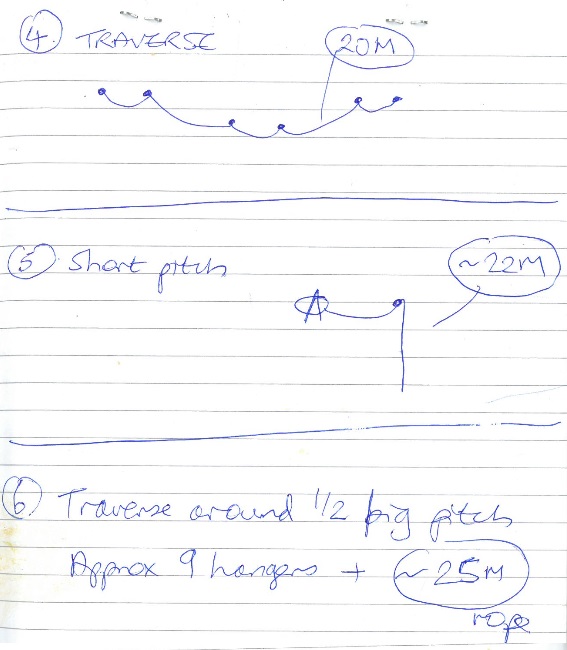 4 TRAVERSE
20M
5 Short pitch
~22M
A
6 Traverse around 1/2 big pitch
Approx 9 hangers + ~25M
rope